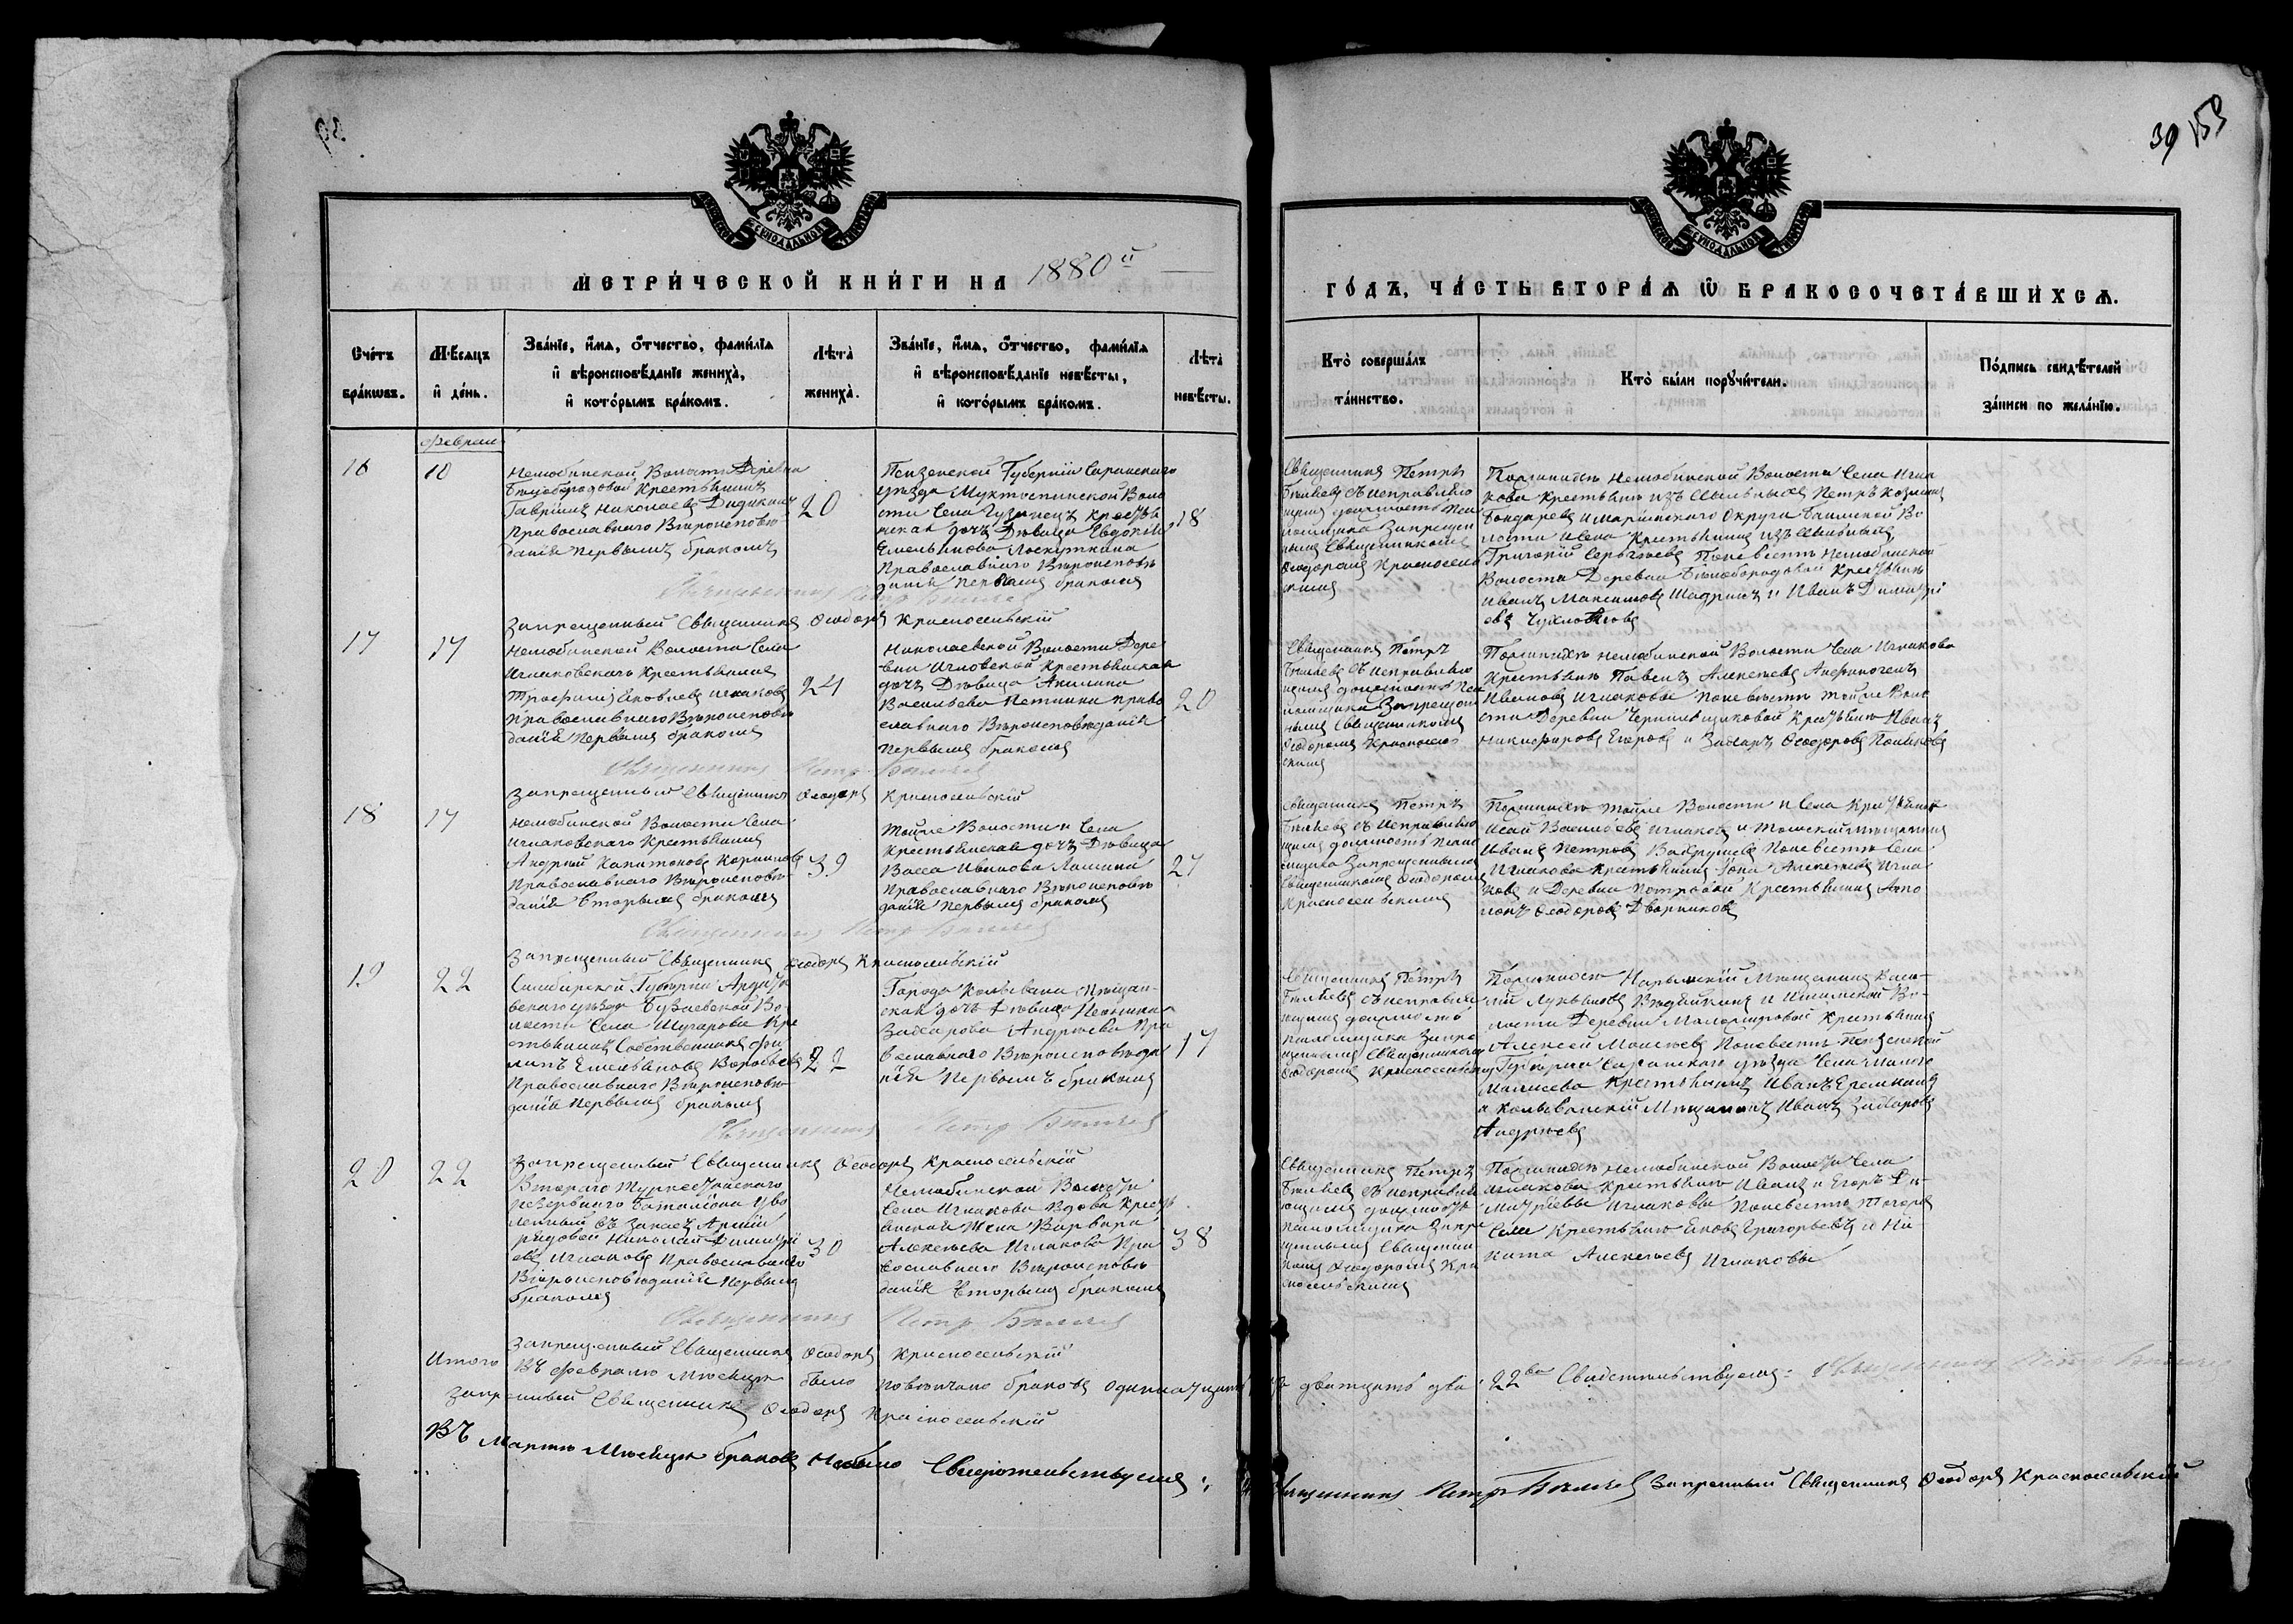 39 153
МЕТРИЧЕСКОЙ КНИГИ НА 1880й
ГОДЪ, ЧАСТЬ ВТОРАЯ Ѿ БРАКОСОЧЕТАВШИХСЯ.
Счетъ браковъ.
Мѣсяцъ и день.
Званіе, имя, отчество, фамилія
и вѣроисповѣданіе жениха,
и которымъ бракомъ.
Лѣта жениха.
Званіе, имя, отчество, фамилія
и вѣроисповѣданіе невѣсты,
и которымъ бракомъ.
Лѣта невѣсты.
Кто совершалъ таинство.
Кто были поручители.
Подпись свидѣтелей
записи по желанію.
16
10
Нелюбинской Волости Деревни
Бѣлобородовой Крестьянинъ
Гавріилъ Николаевъ
Православнаго Вѣроисповѣ-
данія первымъ бракомъ
20
Пензенской Губерніи Саранскаго
уѣзда Воло
сти Села Крестьян
ская дочь Дѣвица Евдокія
Емельянова Лоскуткина
Православнаго Вѣроисповѣ
данія первымъ бракомъ
18
Священникъ Петръ
Бѣляевъ съ исправляю
щимъ должность Пса
ломщика Запрещен
нымъ Священникомъ
Ѳеодоромъ Красносель
скимъ
По женихѣ Нелюбинской Волости Села Игла
кова Крестьяне изъ ссыльныхъ Петръ
Бондаревъ и Маріинскаго Округа Волости и Села Крестьянинъ изъ ссыльныхъ
Григорій По невѣстѣ Нелюбинской
Волости Деревни Бѣлобородовой Крестьяне
Иванъ Максимовъ Шадринъ и Иванъ Димитрі
евъ
Священникъ Петръ Бѣляевъ
Запрещенный Священникъ Ѳеодоръ Красносельскій
17
17
Нелюбинской Волости Села
Иглаковскаго Крестьянинъ
Трофимъ Яковлевъ Иглаковъ
Православнаго Вѣроисповѣ
данія первымъ бракомъ
24
Николаевской Волости Дере
вни Крестьянская
дочь Дѣвица Акилина
Васильева Право
славнаго Вѣроисповѣданія
первымъ бракомъ
20
Священникъ Петръ
Бѣляевъ съ исправляю
щимъ должность Пса
ломщика Запрещен
нымъ Священникомъ
Ѳеодоромъ Красносель
скимъ
По женихѣ Нелюбинской Волости Села Иглакова
Крестьяне Павелъ Алексѣевъ
Ивановъ Иглаковы По невѣстѣ той же Воло
сти Деревни Чернильщиковой Крестьяне Иванъ
Никифоровъ Егоровъ и Захаръ Ѳеодоровъ Поляковъ
Священникъ Петръ Бѣляевъ
Запрещенный Священникъ Ѳеодоръ Красносельскій
18
17
Нелюбинской Волости Села
Иглаковскаго Крестьянинъ
Андрей Капитоновъ
Православнаго Вѣроисповѣ-
данія вторымъ бракомъ
39
Той же Волости и Села
Крестьянская дочь Дѣвица
Васса Иванова
Православнаго Вѣроисповѣ
данія первымъ бракомъ
27
Священникъ Петръ
Бѣляевъ съ исправляю
щимъ должность Псало
мщика Запрещеннымъ
Священникомъ Ѳеодоромъ
Красносельскимъ
По женихѣ той же Волости и Села Крестьянинъ
Исай Васильевъ Иглаковъ и Томскій мѣщанинъ
Иванъ Петровъ Вахрушевъ По невѣстѣ Села
Иглакова Крестьянинъ Іона Алексѣевъ Игла
ковъ и Деревни Петровой Крестьянинъ
Ѳеодоровъ Дворниковъ
Священникъ Петръ Бѣляевъ
Запрещенный Священникъ Ѳеодоръ Красносельскій
19
22
Симбирской Губерніи Ардато
вскаго уѣзда Бузаевской Во
лости Села Шугарова Кре
стьянинъ Собственникъ Фи
липъ Емельяновъ Воробьевъ
Православнаго Вѣроисповѣ
данія первымъ бракомъ
22
Города Колывана Мѣщан-
ская дочь Дѣвица
Захарова Андреева Пра
вославнаго Вѣроисповѣда
нія первымъ бракомъ
17
Священникъ Петръ
Бѣляевъ съ исправля
ющимъ должность
псаломщика Запре
щеннымъ Священникомъ
Ѳеодоромъ Красносельскимъ
По женихѣ Нарымскій Мѣщанинъ Васи-
лій Лукьяновъ и Ишимской Во-
лости Деревни Крестьянинъ
Алексѣй По невѣстѣ Пензенской
Губерніи Саранскаго уѣзда Села
Крестьянинъ Иванъ
и Колыванскій Мѣщанинъ Иванъ Захаровъ
Андреевъ
Священникъ Петръ Бѣляевъ
Запрещенный Священникъ Ѳеодоръ Красносельскій
20
22
Втораго Туркестанскаго
резервнаго баталіона уво
ленный въ запасъ Арміи
рядовой Николай Димитрі
евъ Иглаковъ Православнаго
Вѣроисповѣданія первымъ
бракомъ
30
Нелюбинской Волости
Села Иглакова Вдова Кресть
янская Жена Варвара
Алексѣева Иглакова Пра
вославнаго Вѣроисповѣ
данія вторымъ бракомъ
38
Священникъ Петръ
Бѣляевъ съ исправля
ющимъ должность
псаломщика Запре
щеннымъ Священни
комъ Ѳеодоромъ Кра
сносельскимъ
По женихѣ Нелюбинской Волости Села
Иглакова Крестьяне Иванъ и Егоръ Ди
митріевы Иглаковы По невѣстѣ того же
Села Крестьяне Яковъ Григорьевъ и Ни
кита Алексѣевъ Иглаковы
Священникъ Петръ Бѣляевъ
Запрещенный Священникъ Ѳеодоръ Красносельскій
Итого въ Февралѣ Мѣсяцѣ было повѣнчано браковъ двадцать два 22ва Свидетельствуемъ: Священникъ Петръ Бѣляевъ
Запрещенный Священникъ Ѳеодоръ Красносельскій
Въ Мартѣ Мѣсяцѣ браковъ небыло Свидетельствуемъ: Священникъ Петръ Бѣляевъ Запрещенный Священникъ Ѳеодоръ Красносельскій